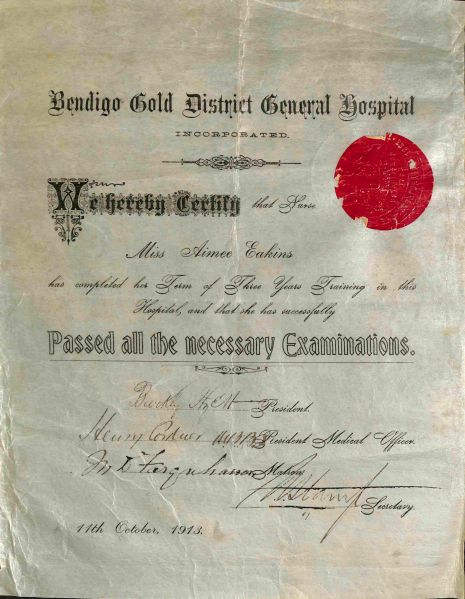 Bendigo Gold District General Hospital
INCORPORATED.
We hereby Certify that Nurse
Miss Aimee Eakins
has completed her Term of Three Years Training in this
Hospital, and that she has successfully
Passed all the necessary Examinations.
President.
Henry Cordner Resident Medical Officer.
Farquharson Matron.
Secretary.
11th October, 1913.